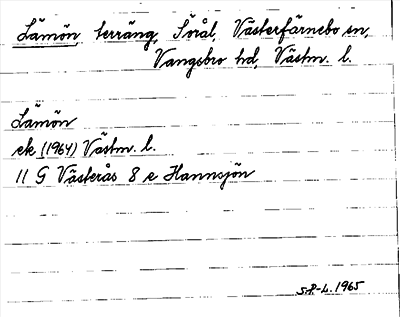 Lämön, terräng, Sörål, Västerfärnebo sn,
Vangsbro hd, Västm. l.
Lämön
ek (1964) Västm. l.
11 G Västerås 8 e Hannsjön
S.P-L. 1965